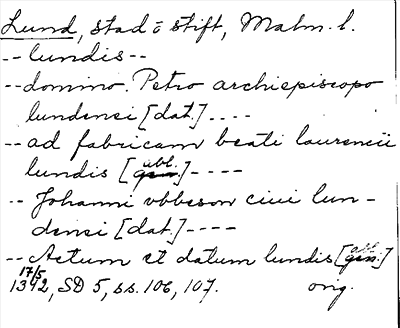 Lund, stad o stift, Malm. l.
-- lundis --
-- domino. Petro archiepiscopo
lundensi [dat.] ----
-- ad fabricam beati laurencii
abl.
lundis [gen.] ----
-- Johanni vbbeson ciui lun-
densi [dat.] ----
abl.
-- Actum et datum lundis [gen.]
17/5
1342, SD 5, ss. 106, 107. orig.